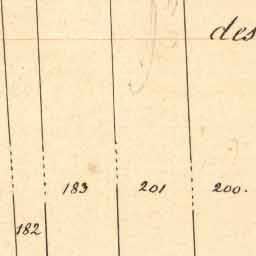 des
183 201 200.
182